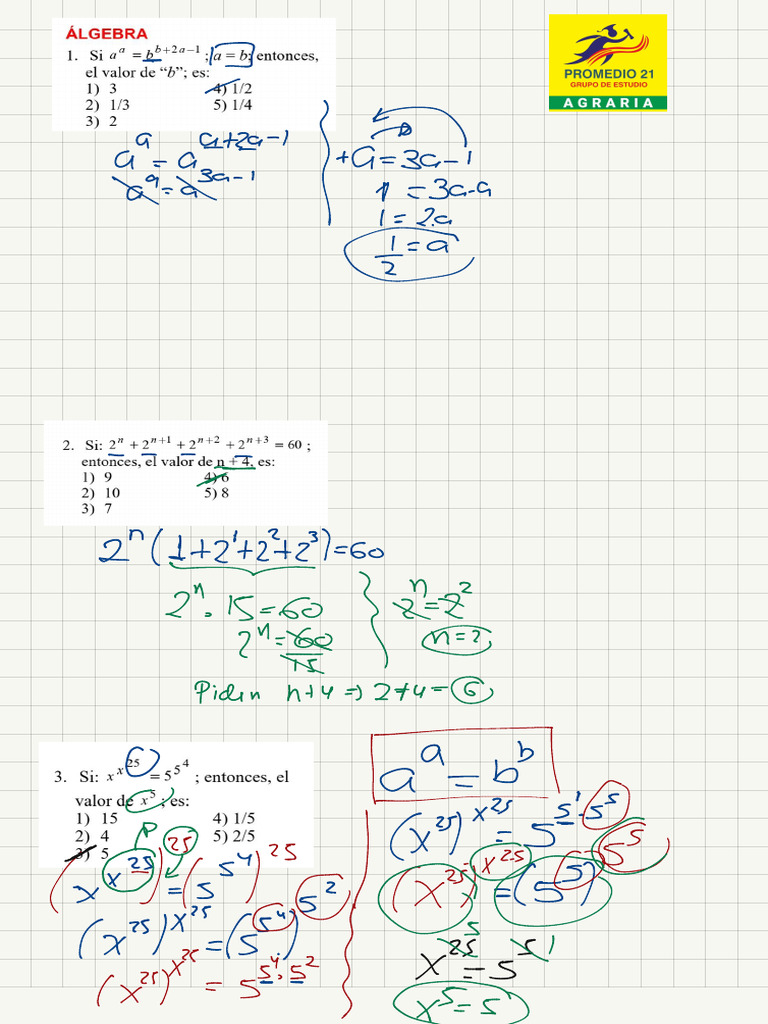 ÁLGEBRA
1. Si a^a = b^(b+2a−1) ; a = b; entonces,
el valor de “b”; es:
1) 3 4) 1/2
2) 1/3 5) 1/4
3) 2
PROMEDIO 21
GRUPO DE ESTUDIO
AGRARIA
a^a = a^(a+2a−1)
a^a = a^(3a−1)
+a = 3a−1
1 = 3a−a
1 = 2a
1/2 = a
2. Si: 2^n + 2^(n+1) + 2^(n+2) + 2^(n+3) = 60 ;
entonces, el valor de n + 4, es:
1) 9 4) 6
2) 10 5) 8
3) 7
2^n (1+2^1+2^2+2^3) = 60
2^n . 15 = 60
2^n = 60/15
2^n = 2^2
n = 2
Piden n+4 ⇒ 2+4 = 6
3. Si: x^x^25 = 5^5^4 ; entonces, el
valor de x^5 ; es:
1) 15 4) 1/5
2) 4 5) 2/5
3) 5
(x^x^25)^25 = (5^5^4)^25
(x^25)^x^25 = (5^5^4)^5^2
(x^25)^x^25 = 5^(5^4 . 5^2)
a^a = b^b
(x^25)^x^25 = 5^(5^1 . 5^5)
(x^25)^x^25 = (5^5)^5^5
x^25 = 5^5
x^5 = 5^1